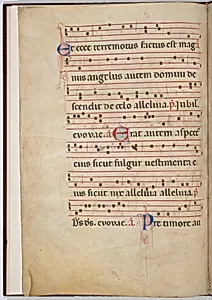 Et ecce terremotus factus est mag
nus angelus autem domini de
scendit de celo alleluia. p. Iubil.
evovae. a. Erat autem aspect
eius sicut fulgur vestimenta e
ius sicut nix alleluia alleluia. p.
Ds ds. evovae. a. Pre timore au